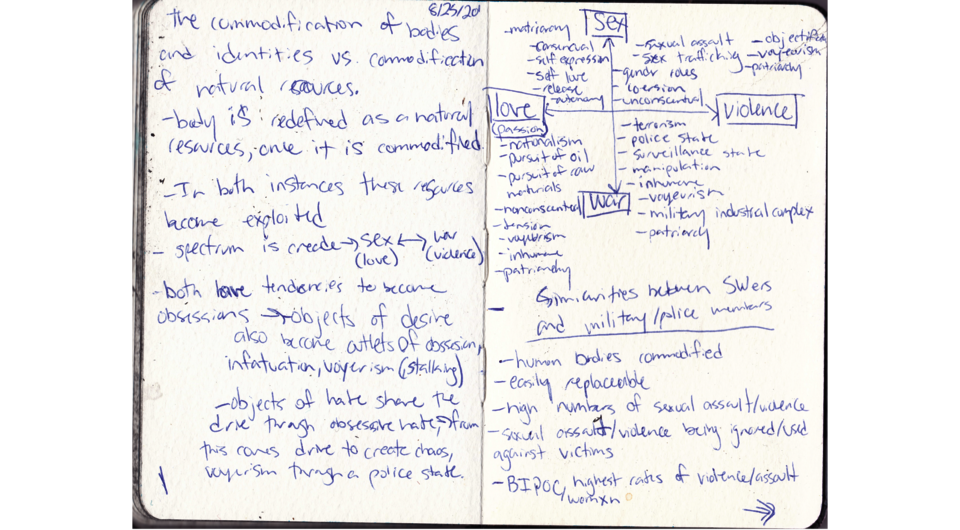 8/25/20
the commodification of bodies
and identities vs. commodification
of natural resources.
-body is: redefined as a natural
resources, once it is commodified.
-In both instances these resources
become exploited
- spectrum is create → sex ↔ war
(love) (violence)
-both love tendencies to become
obsessions → objects of desire
also become outlets of obsession,
infatuation, voyerism (stalking)
-objects of hate share the
drive through obsessive hate, → from
this comes drive to create chaos,
voyerism through a police state.
sex
-matriarchy
-consensual
-self expression
-self love
-release
-autonomy
-sexual assault
-sex trafficking
-gender roles
-coersion
-unconsentual
-objectified
-voyeurism
-patriarchy
love
(passion)
violence
-naturalism
-pursuit of oil
-pursuit of raw
materials
-nonconsented
-tension
-voyeurism
-inhumane
-patriarchy
-terrorism
-police state
-surveillance state
-manipulation
-inhumane
-voyeurism
-military industrial complex
-patriarchy
war
- Similarities between SWers
and military/police members
-human bodies commodified
-easily replaceable
-high numbers of sexual assault/violence
-sexual assault/violence being ignored/used
against victims
-BIPOC/womxn highest rates of violence/assault